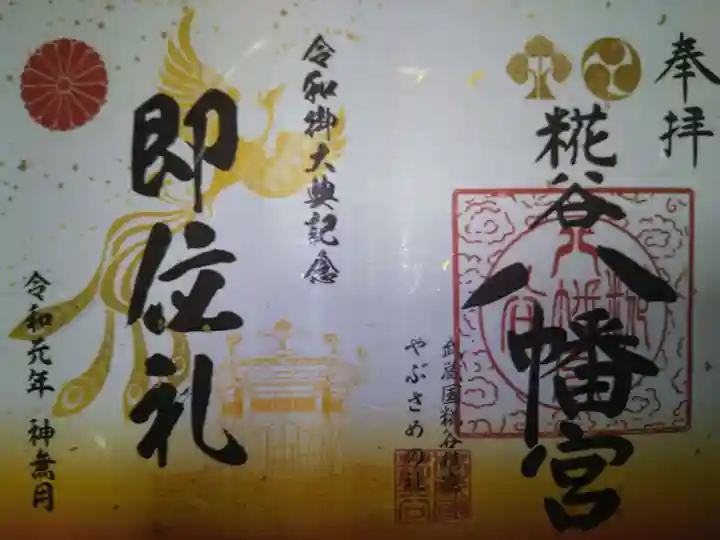 奉拝
糀谷八幡宮
武蔵国糀谷村
やぶさめの社
令和御大典記念
即位礼
令和元年 神無月